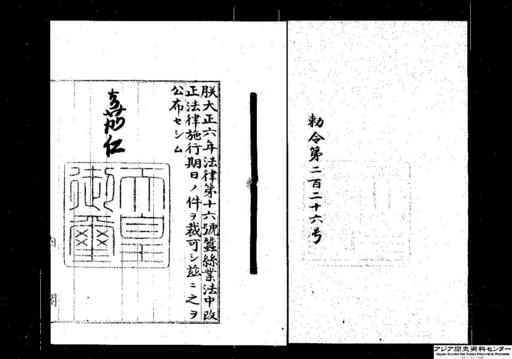 勅令第二百二十六号
朕大正六年法律第十六號蠶絲業法中改
正法律施行期日ノ件ヲ裁可シ茲ニ之ヲ
公布セシム
嘉仁
天皇
御璽
内
閣
アジア歴史資料センター
Japan Center for Asian Historical Records